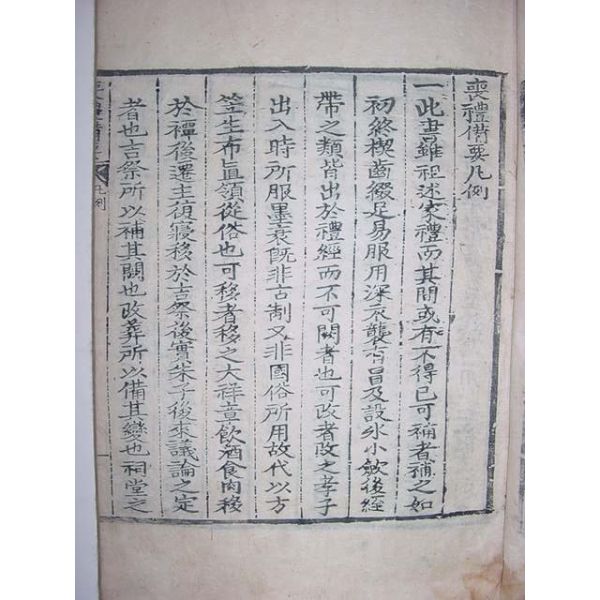 喪禮備要凡例
一此書雖祖述家禮而其間或有不得已可補者補之如
初終楔齒綴足易服用深衣襲有冒及設氷小斂後絰
帶之類皆出於禮經而不可闕者也可改者改之孝子
出入時所服墨衰旣非古制又非國俗所用故代以方
笠生布直領從俗也可移者移之大祥章飮酒食肉移
於禫後遷主復寢移於吉祭後實朱子後來議論之定
者也吉祭所以補其闕也改葬所以備其變也祠堂之
喪禮備要
凡例
一